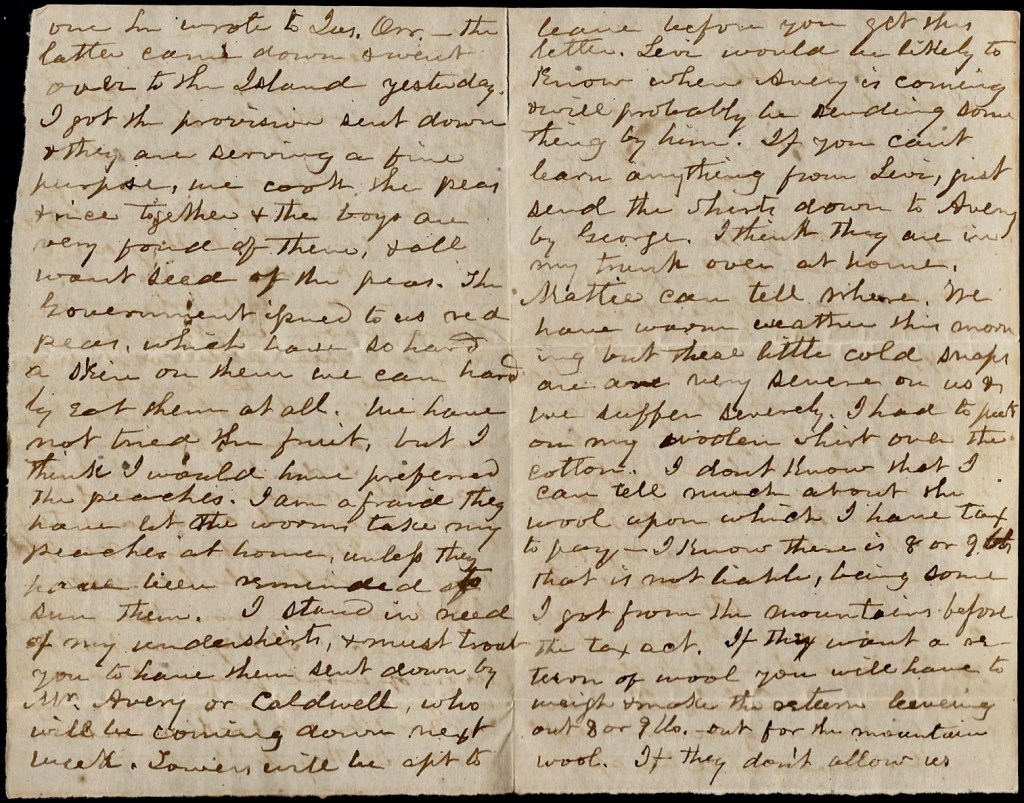 one Jim wrote to Jas. Orr. – the
latter came down & went
over to the Island yesterday.
I got the provision sent down
& they are serving a fine
purpose, we cook the peas
& rice together & the boys are
very fond of them, & all
want seed of the peas. The
Government issued to us red
peas, which have so hard
a skin on them we can hard
ly eat them at all. We have
not tried the fruit, but I
think I would have preferred
the peaches. I am afraid they
have let the worms take my
peaches at home, unless they
have been reminded to
sun them. I stand in need
of my undershirts, & must trouble
you to have them sent down by
Mr. Avery or Caldwell, who
will be coming down next
week. Towers will be apt to
leave before you get this
letter. Levi would be likely to
know when Avery is coming
& will probably be sending some
thing by him. If you cant
learn anything from Levi, just
send the shirts down to Avery
by George. I think they are in
my trunk over at home.
Mattie can tell where. We
have warm weather this morn
ing but these little cold snaps
are are very severe on us &
we suffer severely. I had to put
on my woolen shirt over the
cotton. I dont know that I
can tell much about the
wool upon which I have tax
to pay – I know there is 8 or 9 lbs
that is not liable, being some
I got from the mountains before
the tax act. If they want a re-
turn of wool you will have to
weigh & make the return leaving
out 8 or 9 lbs. – out for the mountain
wool. If they don't allow us